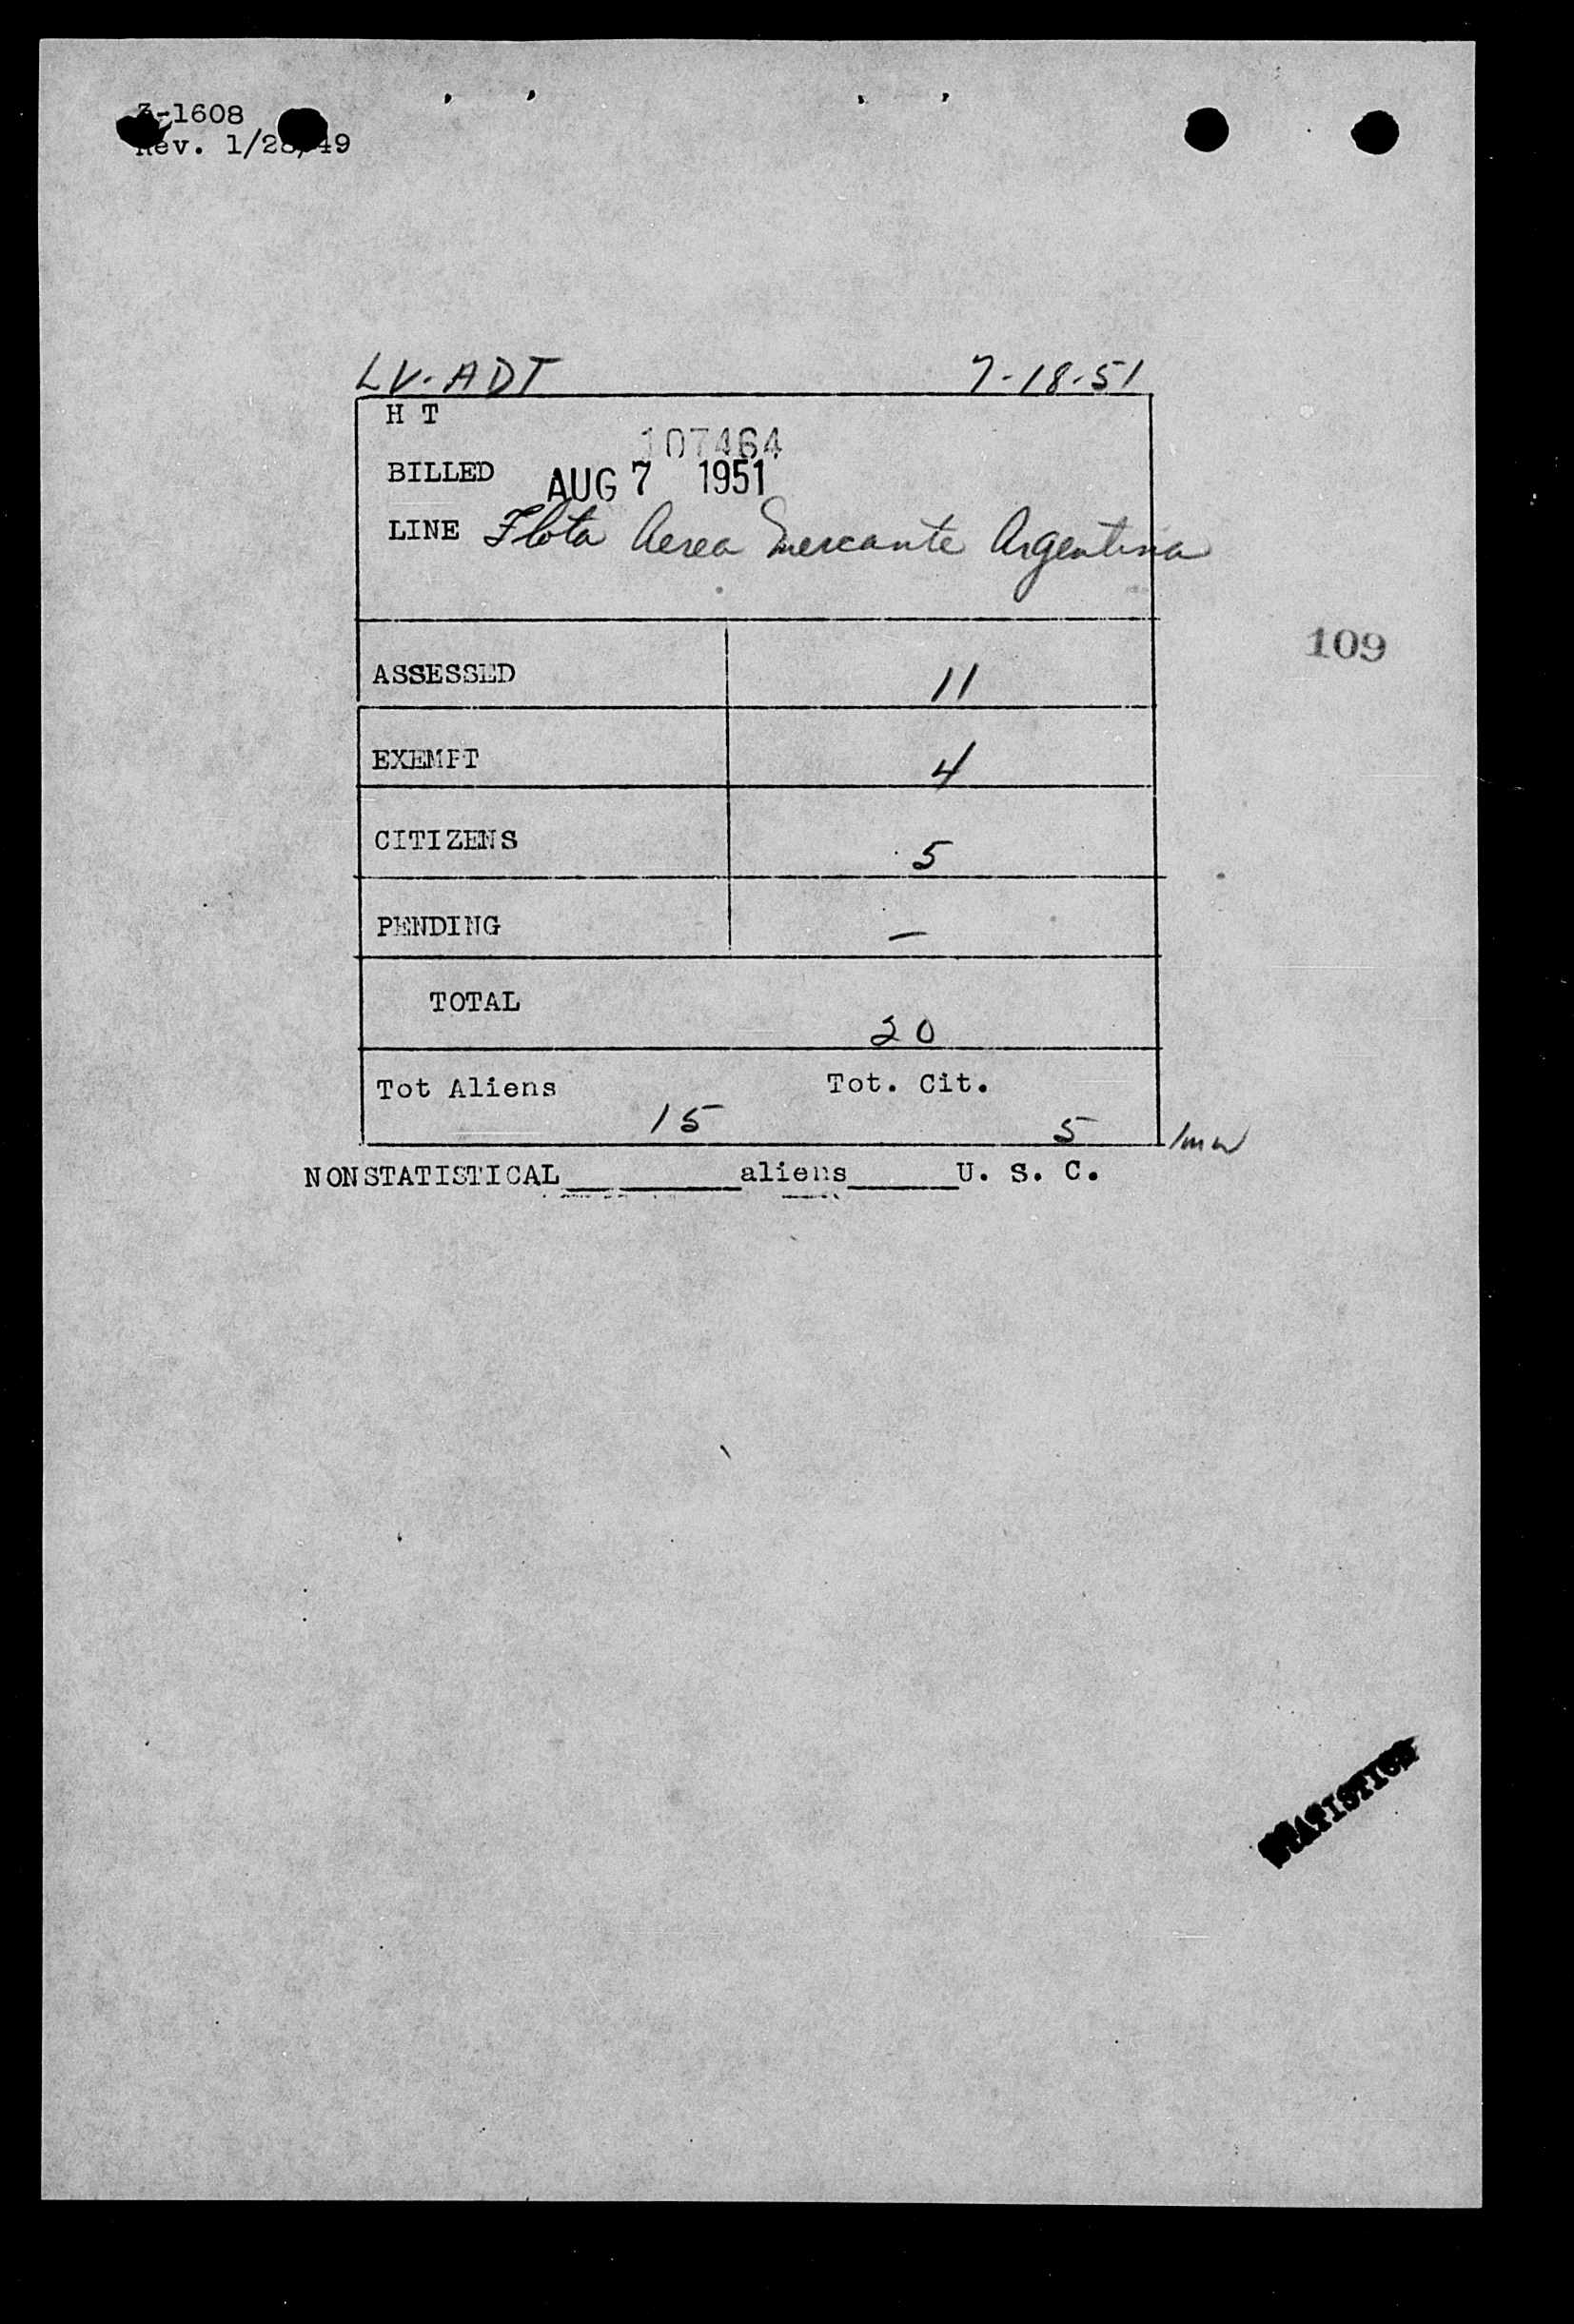 3-1608
Rev. 1/28/49
LV-ADT 7-18-51
H T
107464
BILLED AUG 7 1951
LINE Flota Aerea Mercante Argentina
109
ASSESSED 11
EXEMPT 4
CITIZENS 5
PENDING —
TOTAL 20
Tot Aliens 15 Tot. Cit. 5
NONSTATISTICAL________aliens_____U. S. C.
STATISTICS